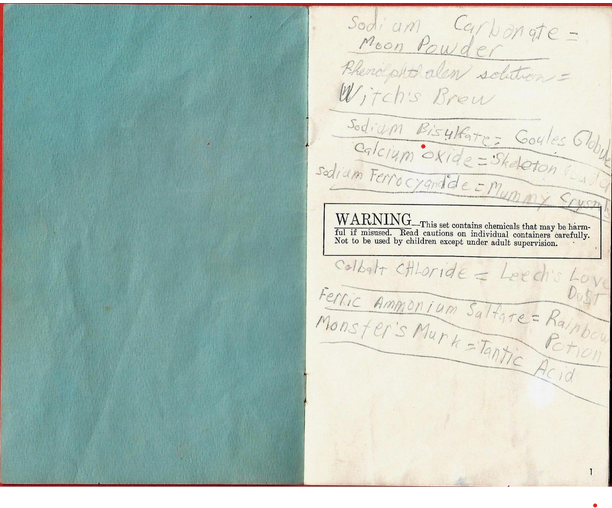 Sodium Carbonate =
Moon Powder
solution =
Witch's Brew
Sodium Bisulfate = Goules
Calcium Oxide = Skeleton
Sodium Ferrocyanide = Mummy
WARNING—This set contains chemicals that may be harm-
ful if misused. Read cautions on individual containers carefully.
Not to be used by children except under adult supervision.
Colbalt CHLoride = Leech's Love
Dust
Ferric Ammonium Sulfate = Rainbow
Potion
Monster's Murk = Tantic Acid
1